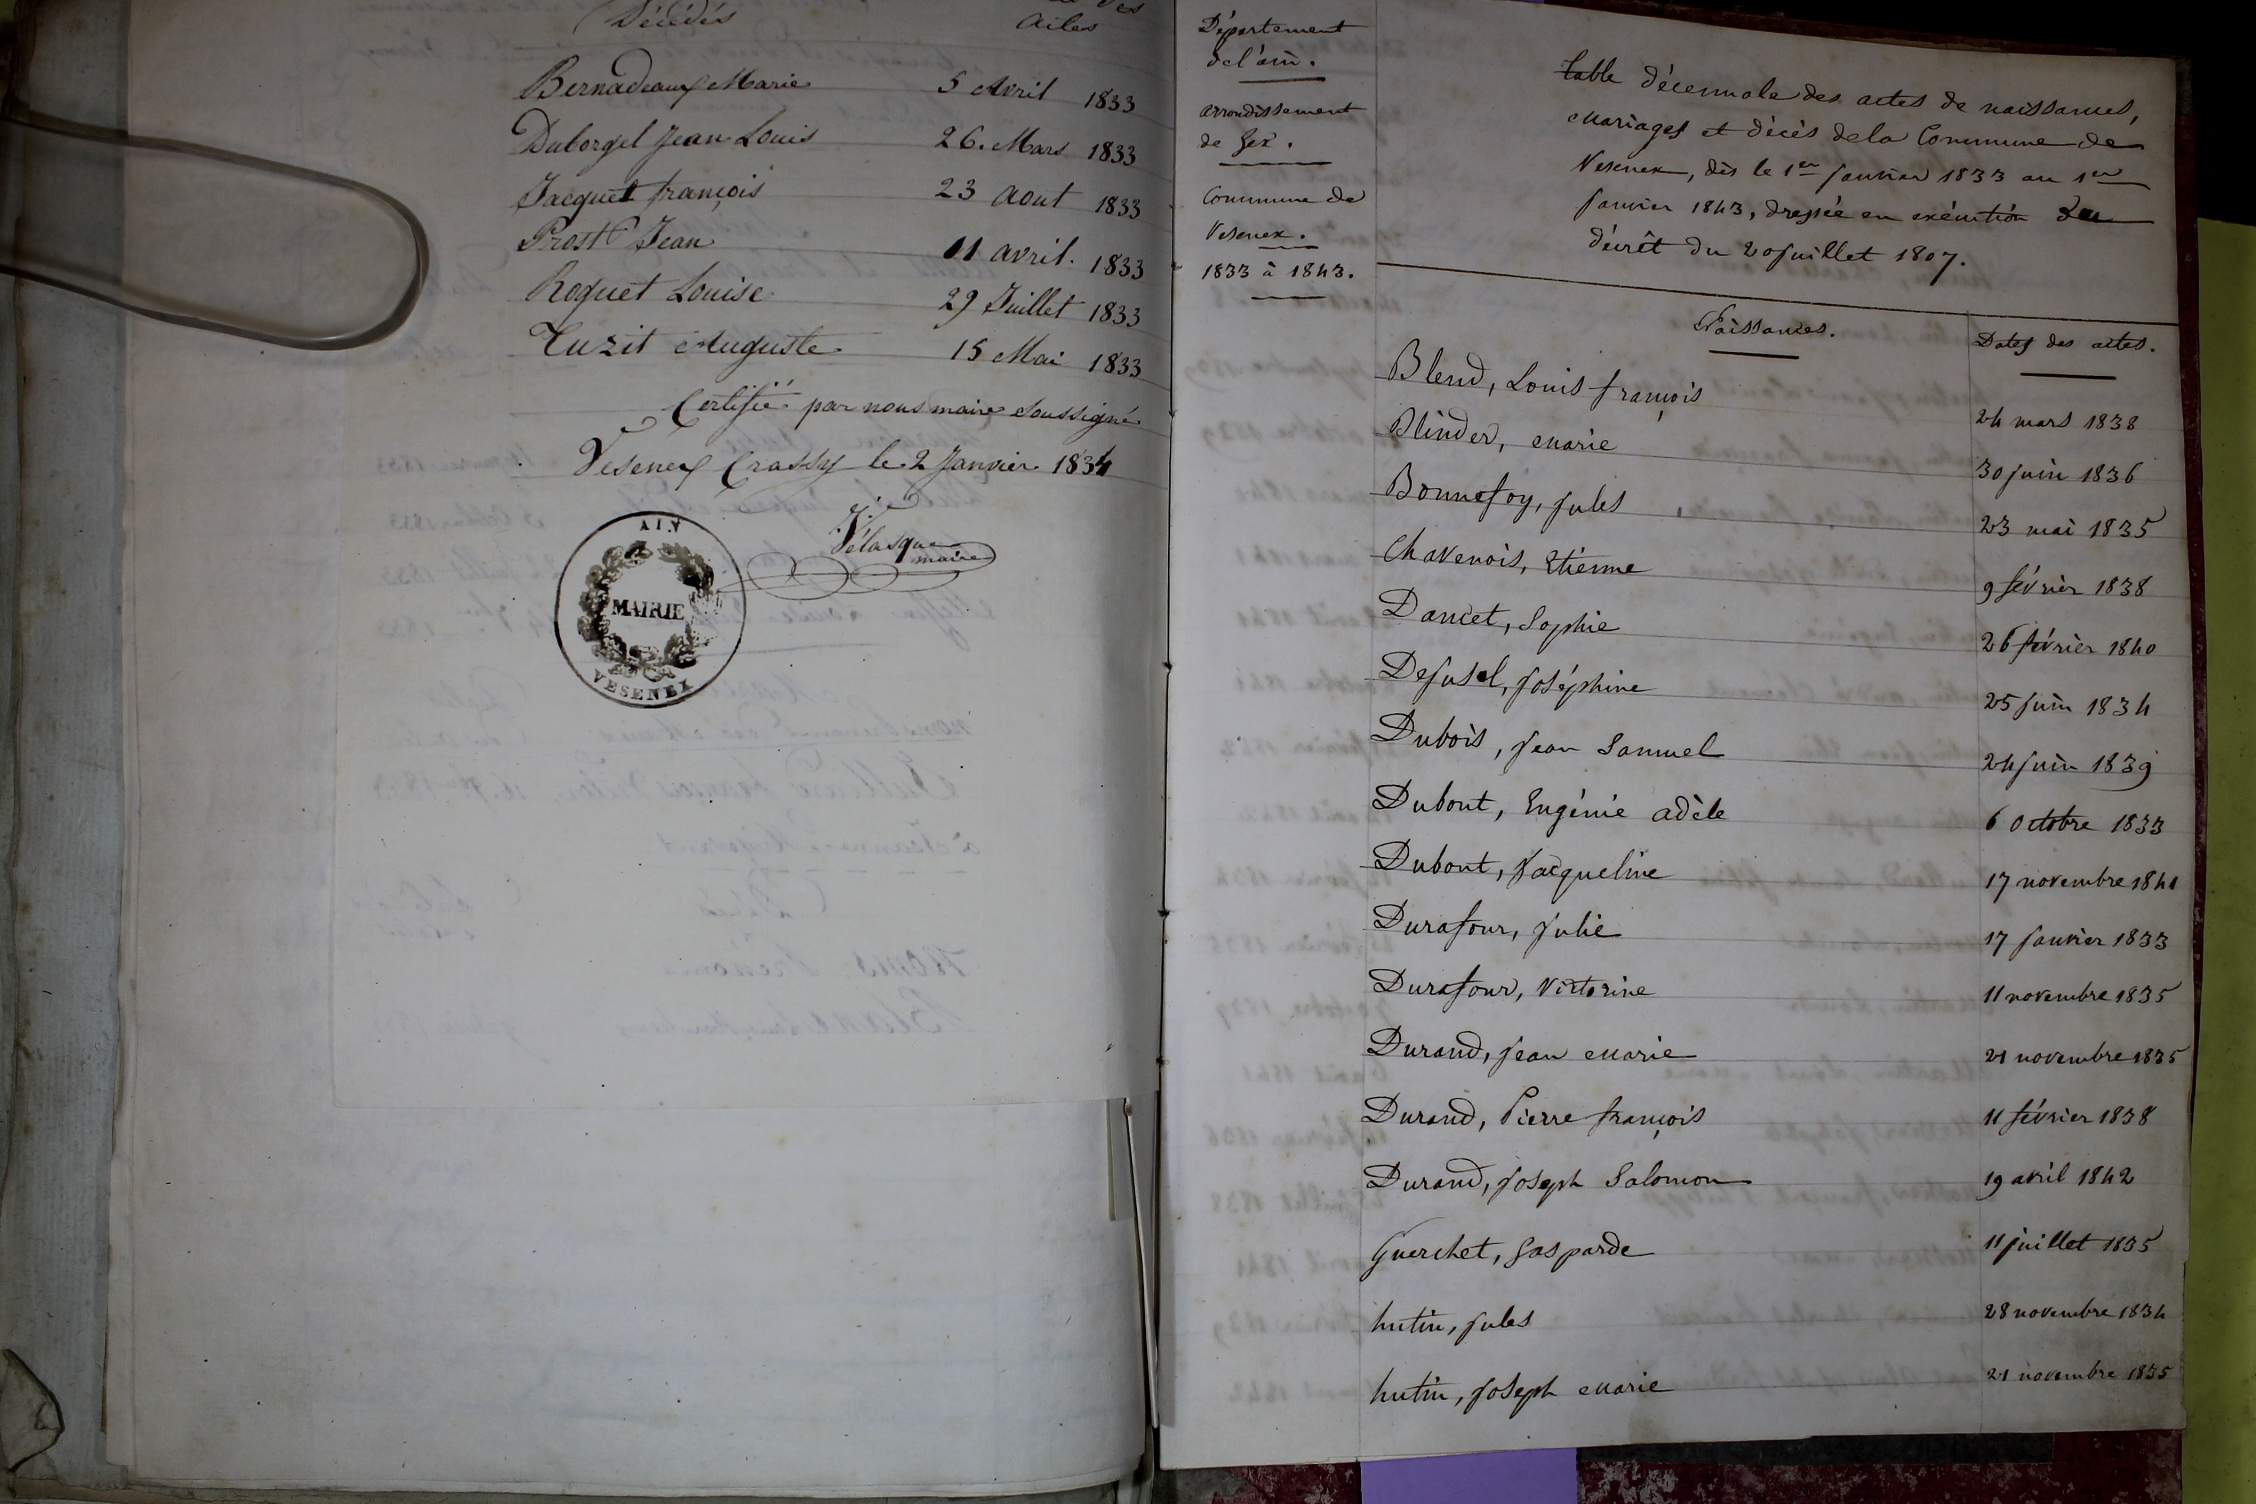 Décédés
des
actes
Bernadeaux Marie 5 Avril 1833
Duborgel Jean Louis 26. Mars 1833
Jacquet françois 23 aout 1833
Prost Jean 11 avril. 1833
Roquet Louise 29 Juillet 1833
Tuzit Auguste 15 Mai 1833
Certifié par nous maire soussigné
Vesenex Crassy le 2 Janvier 1834
Vélasque
maire
AIN
MAIRIE
VESENEX
Département
de l'ain.
arrondissement
de Gex.
Commune de
Vesenex.
1833 à 1843.
table décennale des actes de naissances,
mariages et décès de la Commune de
Vesenex, dès le 1er janvier 1833 au 1er
janvier 1843, dressée en exécution du
décrêt du 20 juillet 1807.
Naissances. Dates des actes.
Blend, Louis françois 24 mars 1838
Blinder, marie 30 juin 1836
Bonnefoy, jules 23 mai 1835
Chavenois, Etienne 9 février 1838
Dancet, Sophie 26 février 1840
Dejusel, joséphine 25 juin 1834
Dubois, jean Samuel 24 juin 1839
Dubout, Eugénie adèle 6 octobre 1833
Dubout, Jacqueline 17 novembre 1841
Durafour, julie 17 janvier 1833
Durafour, Victorine 11 novembre 1835
Durand, jean marie 21 novembre 1835
Durand, Pierre françois 11 février 1838
Durand, joseph Salomon 19 avril 1842
Guerchet, gasparde 11 juillet 1835
hutin, jules 28 novembre 1834
hutin, joseph marie 21 novembre 1835